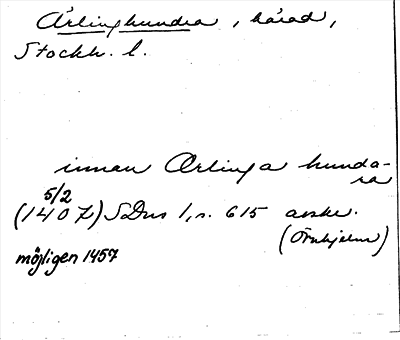 Ärlinghundra, härad,
Stockh. l.
innan Ærlinga hunda-
ra
5/2
(1407) SDns 1, s. 615 avskr.
(Örnhjelm)
möjligen 1457